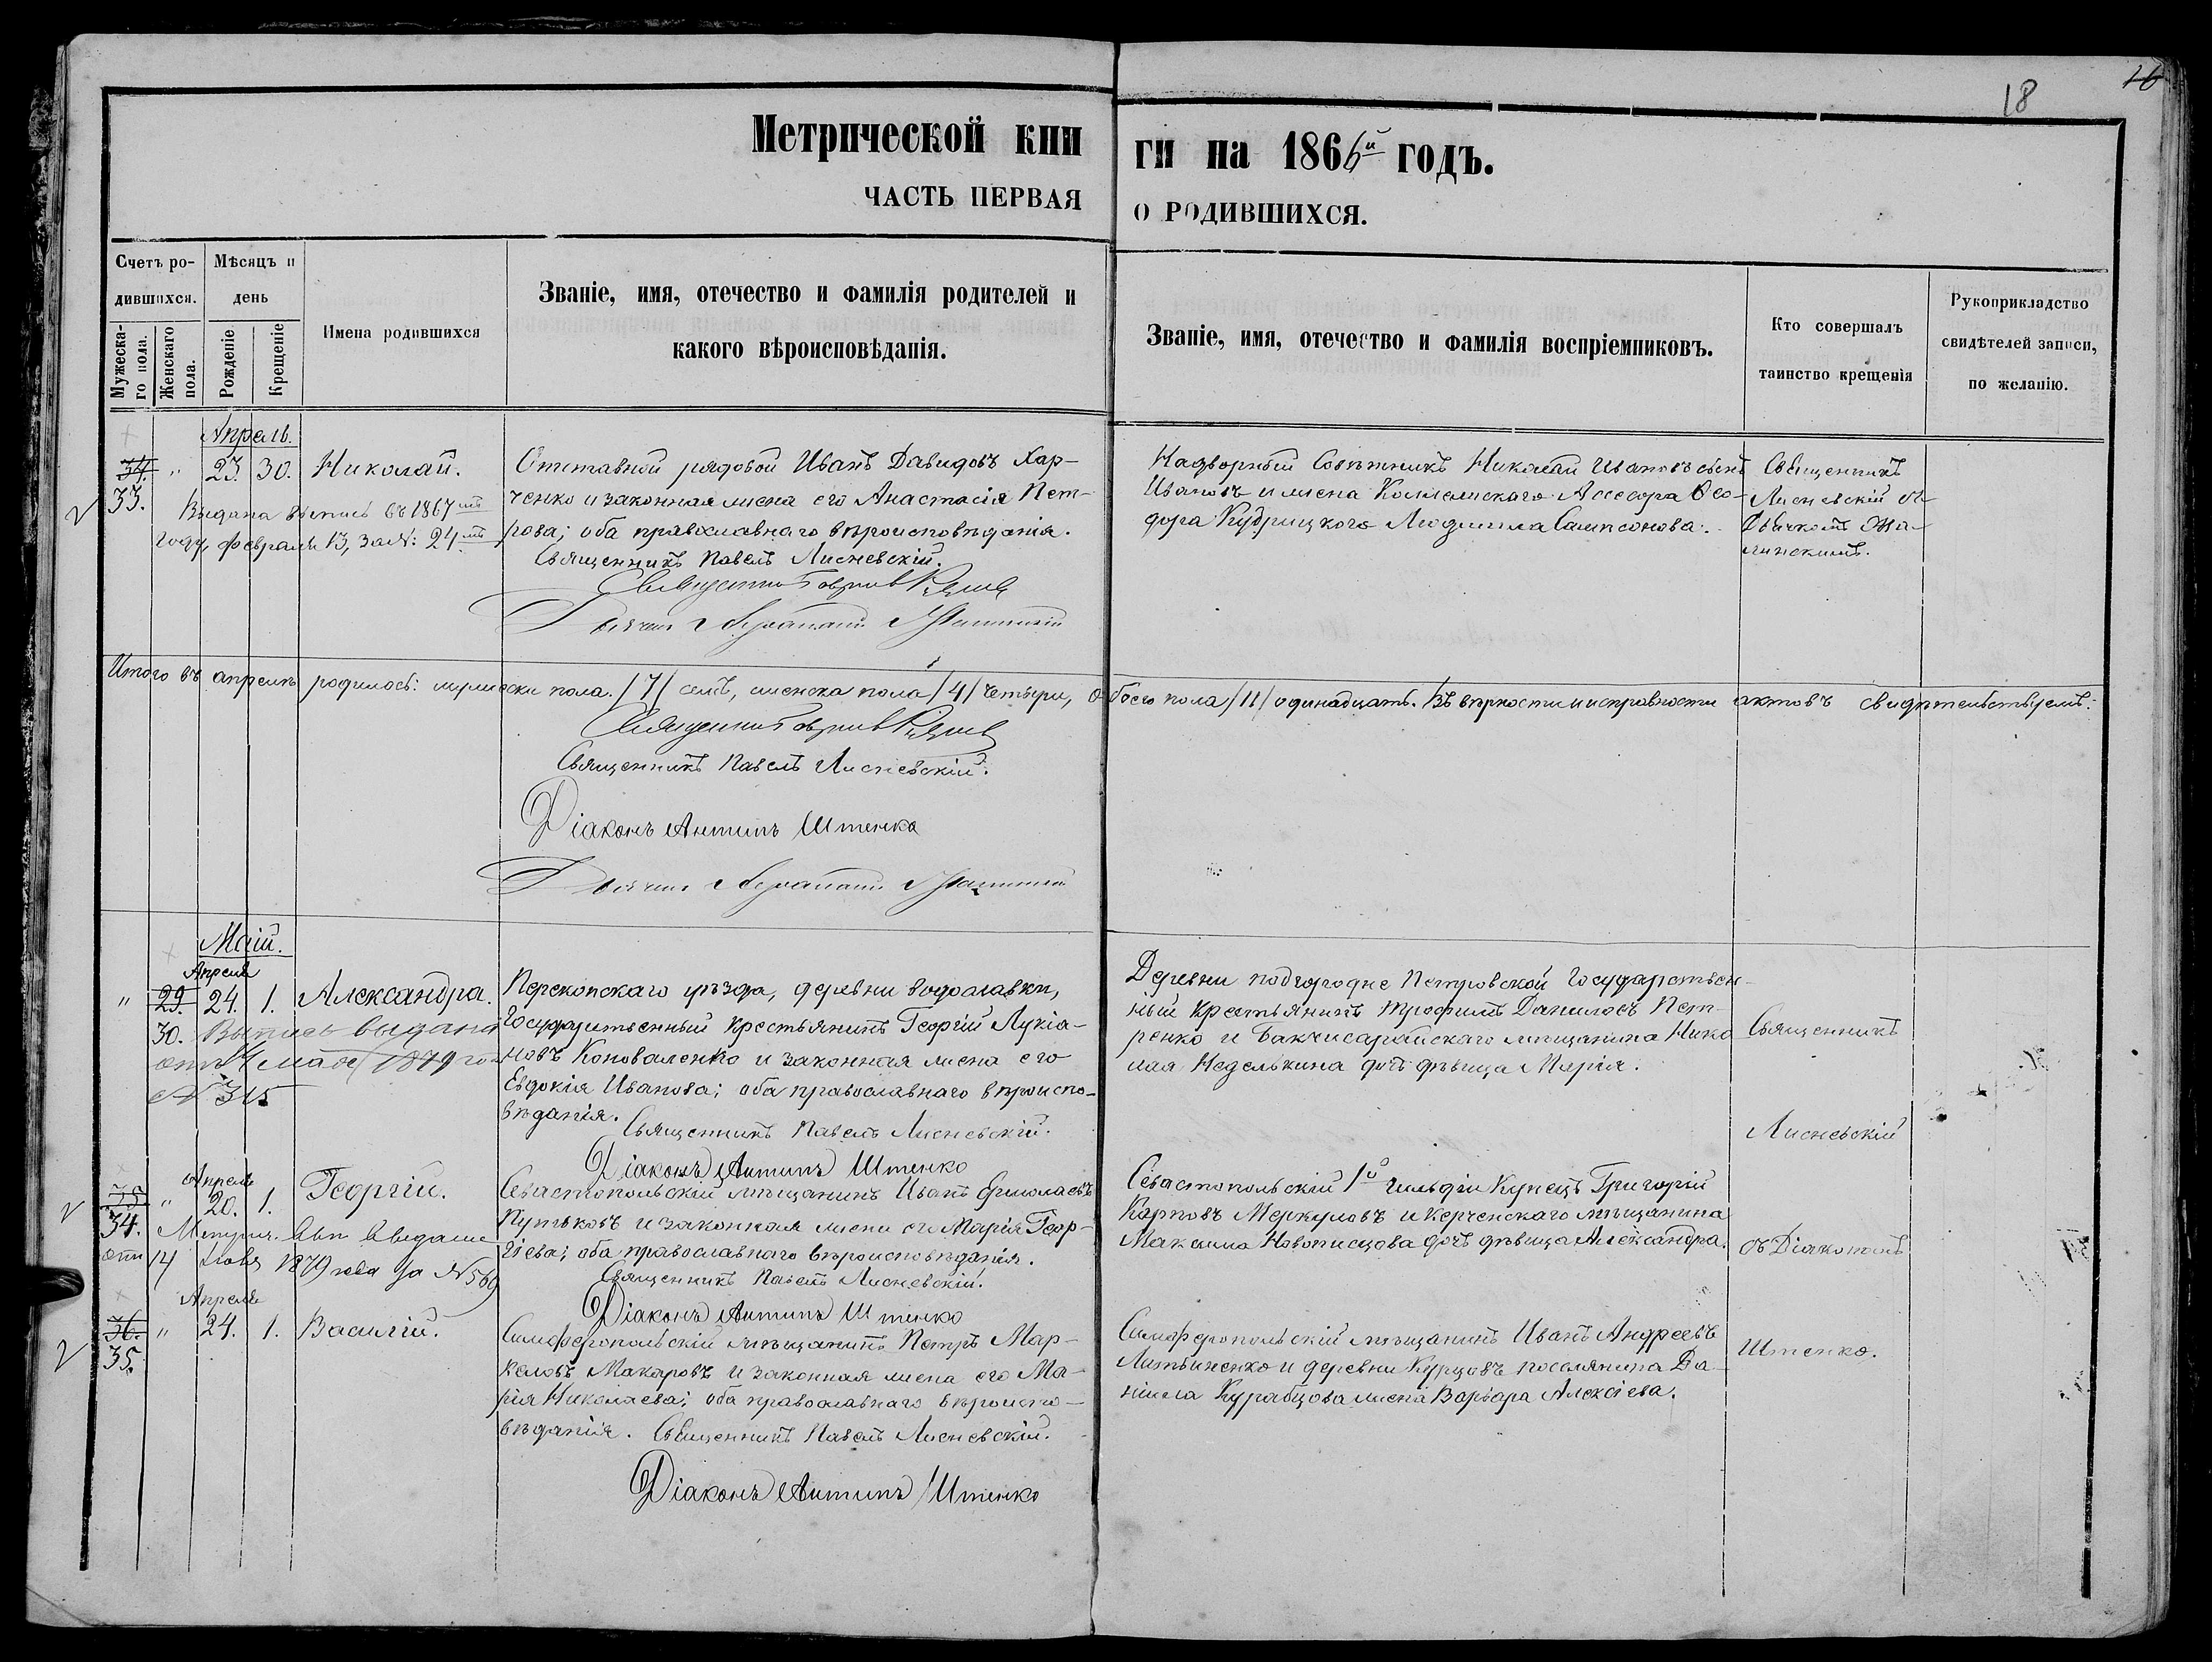 16
18
Метрической кни
ги на 1866й годъ.
ЧАСТЬ ПЕРВАЯ
О РОДИВШИХСЯ.
Счетъ ро-
дившихся.
Мужеска-
го пола.
Женскаго
пола.
Мѣсяцъ и
день
Рожденіе
Крещеніе
Имена родившихся
Званіе, имя, отечество и фамилія родителей и
какого вѣроисповѣданія.
Званіе, имя, отечество и фамилія воспріемниковъ.
Кто совершалъ
таинство крещенія
Рукоприкладство
свидѣтелей записи,
по желанію.
Апрель.
34. " 23. 30. Николай.
33.
Выдана выпись въ 1867мъ
году, февраля 13, за №: 24мъ
Отставной рядовой Иванъ Давидовъ Хар-
ченко и законная жена его Анастасія Пет-
рова; оба православнаго вѣроисповѣданія.
Священникъ Павелъ Лисневскій.
Священник
Дьячекъ
Надворный Совѣтникъ Николай Ивановъ сынъ
Ивановъ и жена Коллежскаго Ассесора Ѳео-
дора Кудрицкого Людмила Сампсонова.
Священникъ
Лисневскій съ
Дьячкомъ
Итого въ апрелѣ родилось: мужеска пола /7/ семь, женска пола /4/ четыри, обоего пола /11/ одинадцать. Въ вѣрности и исправности актовъ свидѣтельствуемъ:
Священник
Священникъ Павелъ Лисневскій.
Діаконъ Антипъ Штенко
Дьячекъ
Маій.
Апреля
" 29. 24. 1. Александра.
30. Выпись выдана
отъ 4 мая 1879 го
№ 315
Перекопскаго уѣзда, деревни Водославки,
Государственный крестьянинъ Георгій Лукіа-
новъ Коноваленко и законная жена его
Евдокія Иванова; оба православнаго вѣроиспо-
вѣданія.
Священникъ Павелъ Лисневскій.
Діаконъ Антипъ Штенко
Деревни подгородне Петровской Государствен-
ный крестьянинъ Трофимъ Даниловъ Пет-
ренко и Бакчисарайскаго мѣщанина Нико
лая Неделькина дочь дѣвица Марія.
Священникъ
Лисневскій
Апреля
35. " 20. 1. Георгій.
34. Метрич. вып выдана
отъ 14 1879 года за № 569
Севастопольскій мѣщанинъ Иванъ Ермолаевъ
Путьковъ и законная жена его Марія Геор-
гіева; оба православнаго вѣроисповѣданія.
Священникъ Павелъ Лисневскій.
Діаконъ Антипъ Штенко
Севастопольскій 1й гильдіи Купецъ Григорій
Карповъ Меркуловъ и Керченскаго мѣщанина
Максима Новописцова дочь дѣвица Александра.
съ Діакономъ
Апреля
36. " 24. 1. Василій.
35.
Симферопольскій мѣщанинъ Петръ Мар-
келовъ Макаровъ и законная жена его Ма-
рія Николаева; оба православнаго вѣроиспо-
вѣданія. Священникъ Павелъ Лисневскій.
Діаконъ Антипъ Штенко
Симферопольскій мѣщанинъ Иванъ Андреевъ
Литвиненко и деревни Курцовъ поселянина Да-
ніила Курабцова жена Варвара Алексіева.
Штенко.